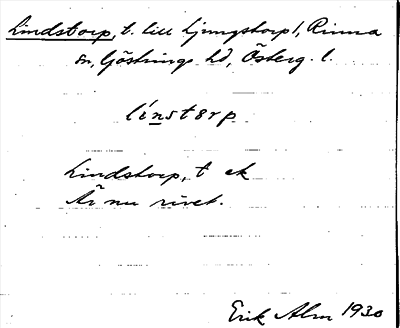 Lindstorp, t. till Ljungstorp 1, Rinna
sn, Göstrings hd, Österg. l.
línstørp
Lindstorp, t ek
Är nu rivet.
Erik Alm 1930